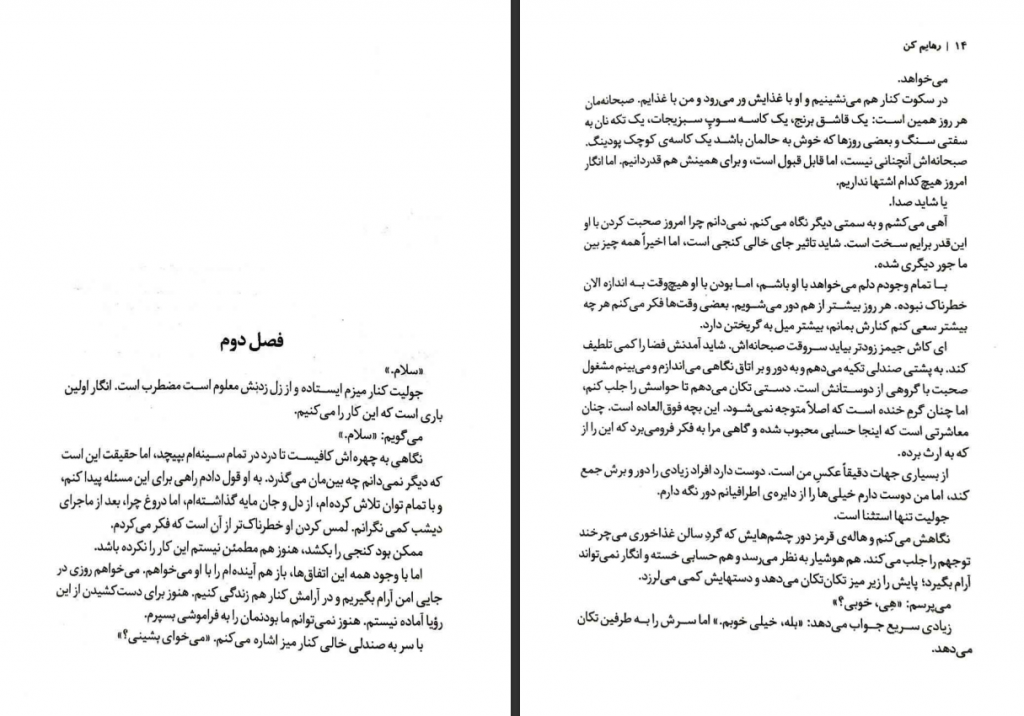 فصل دوم
«سلام.»
جولیت کنار میزم ایستاده و از زل زدنش معلوم است مضطرب است. انگار اولین
باری است که این کار را می‌کنیم.
می‌گویم: «سلام.»
نگاهی به چهره‌اش کافیست تا درد در تمام سینه‌ام بپیچد، اما حقیقت این است
که دیگر نمی‌دانم چه بین‌مان می‌گذرد. به او قول دادم راهی برای این مسئله پیدا کنم،
و با تمام توان تلاش کرده‌ام، از دل و جان مایه گذاشته‌ام، اما دروغ چرا، بعد از ماجرای
دیشب کمی نگرانم. لمس کردن او خطرناک‌تر از آن است که فکر می‌کردم.
ممکن بود کنجی را بکشد، هنوز هم مطمئن نیستم این کار را نکرده باشد.
اما با وجود همه این اتفاق‌ها، باز هم آینده‌ام را با او می‌خواهم. می‌خواهم روزی در
جایی امن آرام بگیریم و در آرامش کنار هم زندگی کنیم. هنوز برای دست‌کشیدن از این
رؤیا آماده نیستم. هنوز نمی‌توانم ما بودنمان را به فراموشی بسپرم.
با سر به صندلی خالی کنار میز اشاره می‌کنم. «می‌خوای بشینی؟»
۱۴ | رهایم کن
می‌خواهد.
در سکوت کنار هم می‌نشینیم و او با غذایش ور می‌رود و من با غذایم. صبحانه‌مان
هر روز همین است: یک قاشق برنج، یک کاسه سوپ سبزیجات، یک تکه نان به
سفتی سنگ و بعضی روزها که خوش به حالمان باشد یک کاسه‌ی کوچک پودینگ.
صبحانه‌اش آنچنانی نیست، اما قابل قبول است، و برای همینش هم قدردانیم. اما انگار
امروز هیچ‌کدام اشتها نداریم.
یا شاید صدا.
آهی می‌کشم و به سمتی دیگر نگاه می‌کنم. نمی‌دانم چرا امروز صحبت کردن با او
این‌قدر برایم سخت است. شاید تاثیر جای خالی کنجی است، اما اخیراً همه چیز بین
ما جور دیگری شده.
با تمام وجودم دلم می‌خواهد با او باشم، اما بودن با او هیچ‌وقت به اندازه الان
خطرناک نبوده. هر روز بیشتر از هم دور می‌شویم. بعضی وقت‌ها فکر می‌کنم هر چه
بیشتر سعی کنم کنارش بمانم، بیشتر میل به گریختن دارد.
ای کاش جیمز زودتر بیاید سروقت صبحانه‌اش. شاید آمدنش فضا را کمی تلطیف
کند. به پشتی صندلی تکیه می‌دهم و به دور و بر اتاق نگاهی می‌اندازم و می‌بینم مشغول
صحبت با گروهی از دوستانش است. دستی تکان می‌دهم تا حواسش را جلب کنم،
اما چنان گرمِ خنده است که اصلاً متوجه نمی‌شود. این بچه فوق‌العاده است. چنان
معاشرتی است که اینجا حسابی محبوب شده و گاهی مرا به فکر فرومی‌برد که این را از
که به ارث برده.
از بسیاری جهات دقیقاً عکسِ من است. دوست دارد افراد زیادی را دور و برش جمع
کند، اما من دوست دارم خیلی‌ها را از دایره‌ی اطرافیانم دور نگه دارم.
جولیت تنها استثنا است.
نگاهش می‌کنم و هاله‌ی قرمز دور چشم‌هایش که گردِ سالن غذاخوری می‌چرخند
توجهم را جلب می‌کند. هم هوشیار به نظر می‌رسد و هم حسابی خسته و انگار نمی‌تواند
آرام بگیرد؛ پایش را زیر میز تکان‌تکان می‌دهد و دستهایش کمی می‌لرزد.
می‌پرسم: «هِی، خوبی؟»
زیادی سریع جواب می‌دهد: «بله، خیلی خوبم.» اما سرش را به طرفین تکان
می‌دهد.